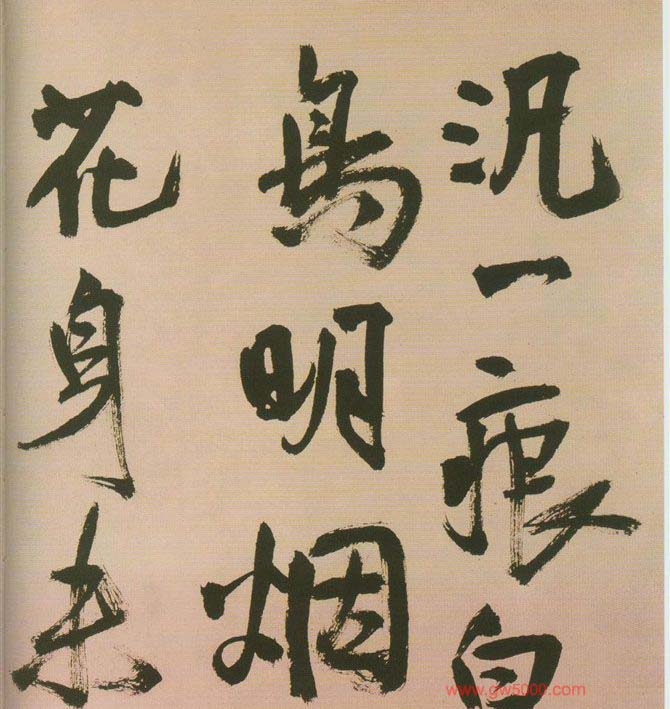 汎一痕白
鳥明烟
花身未
www.gw5000.com